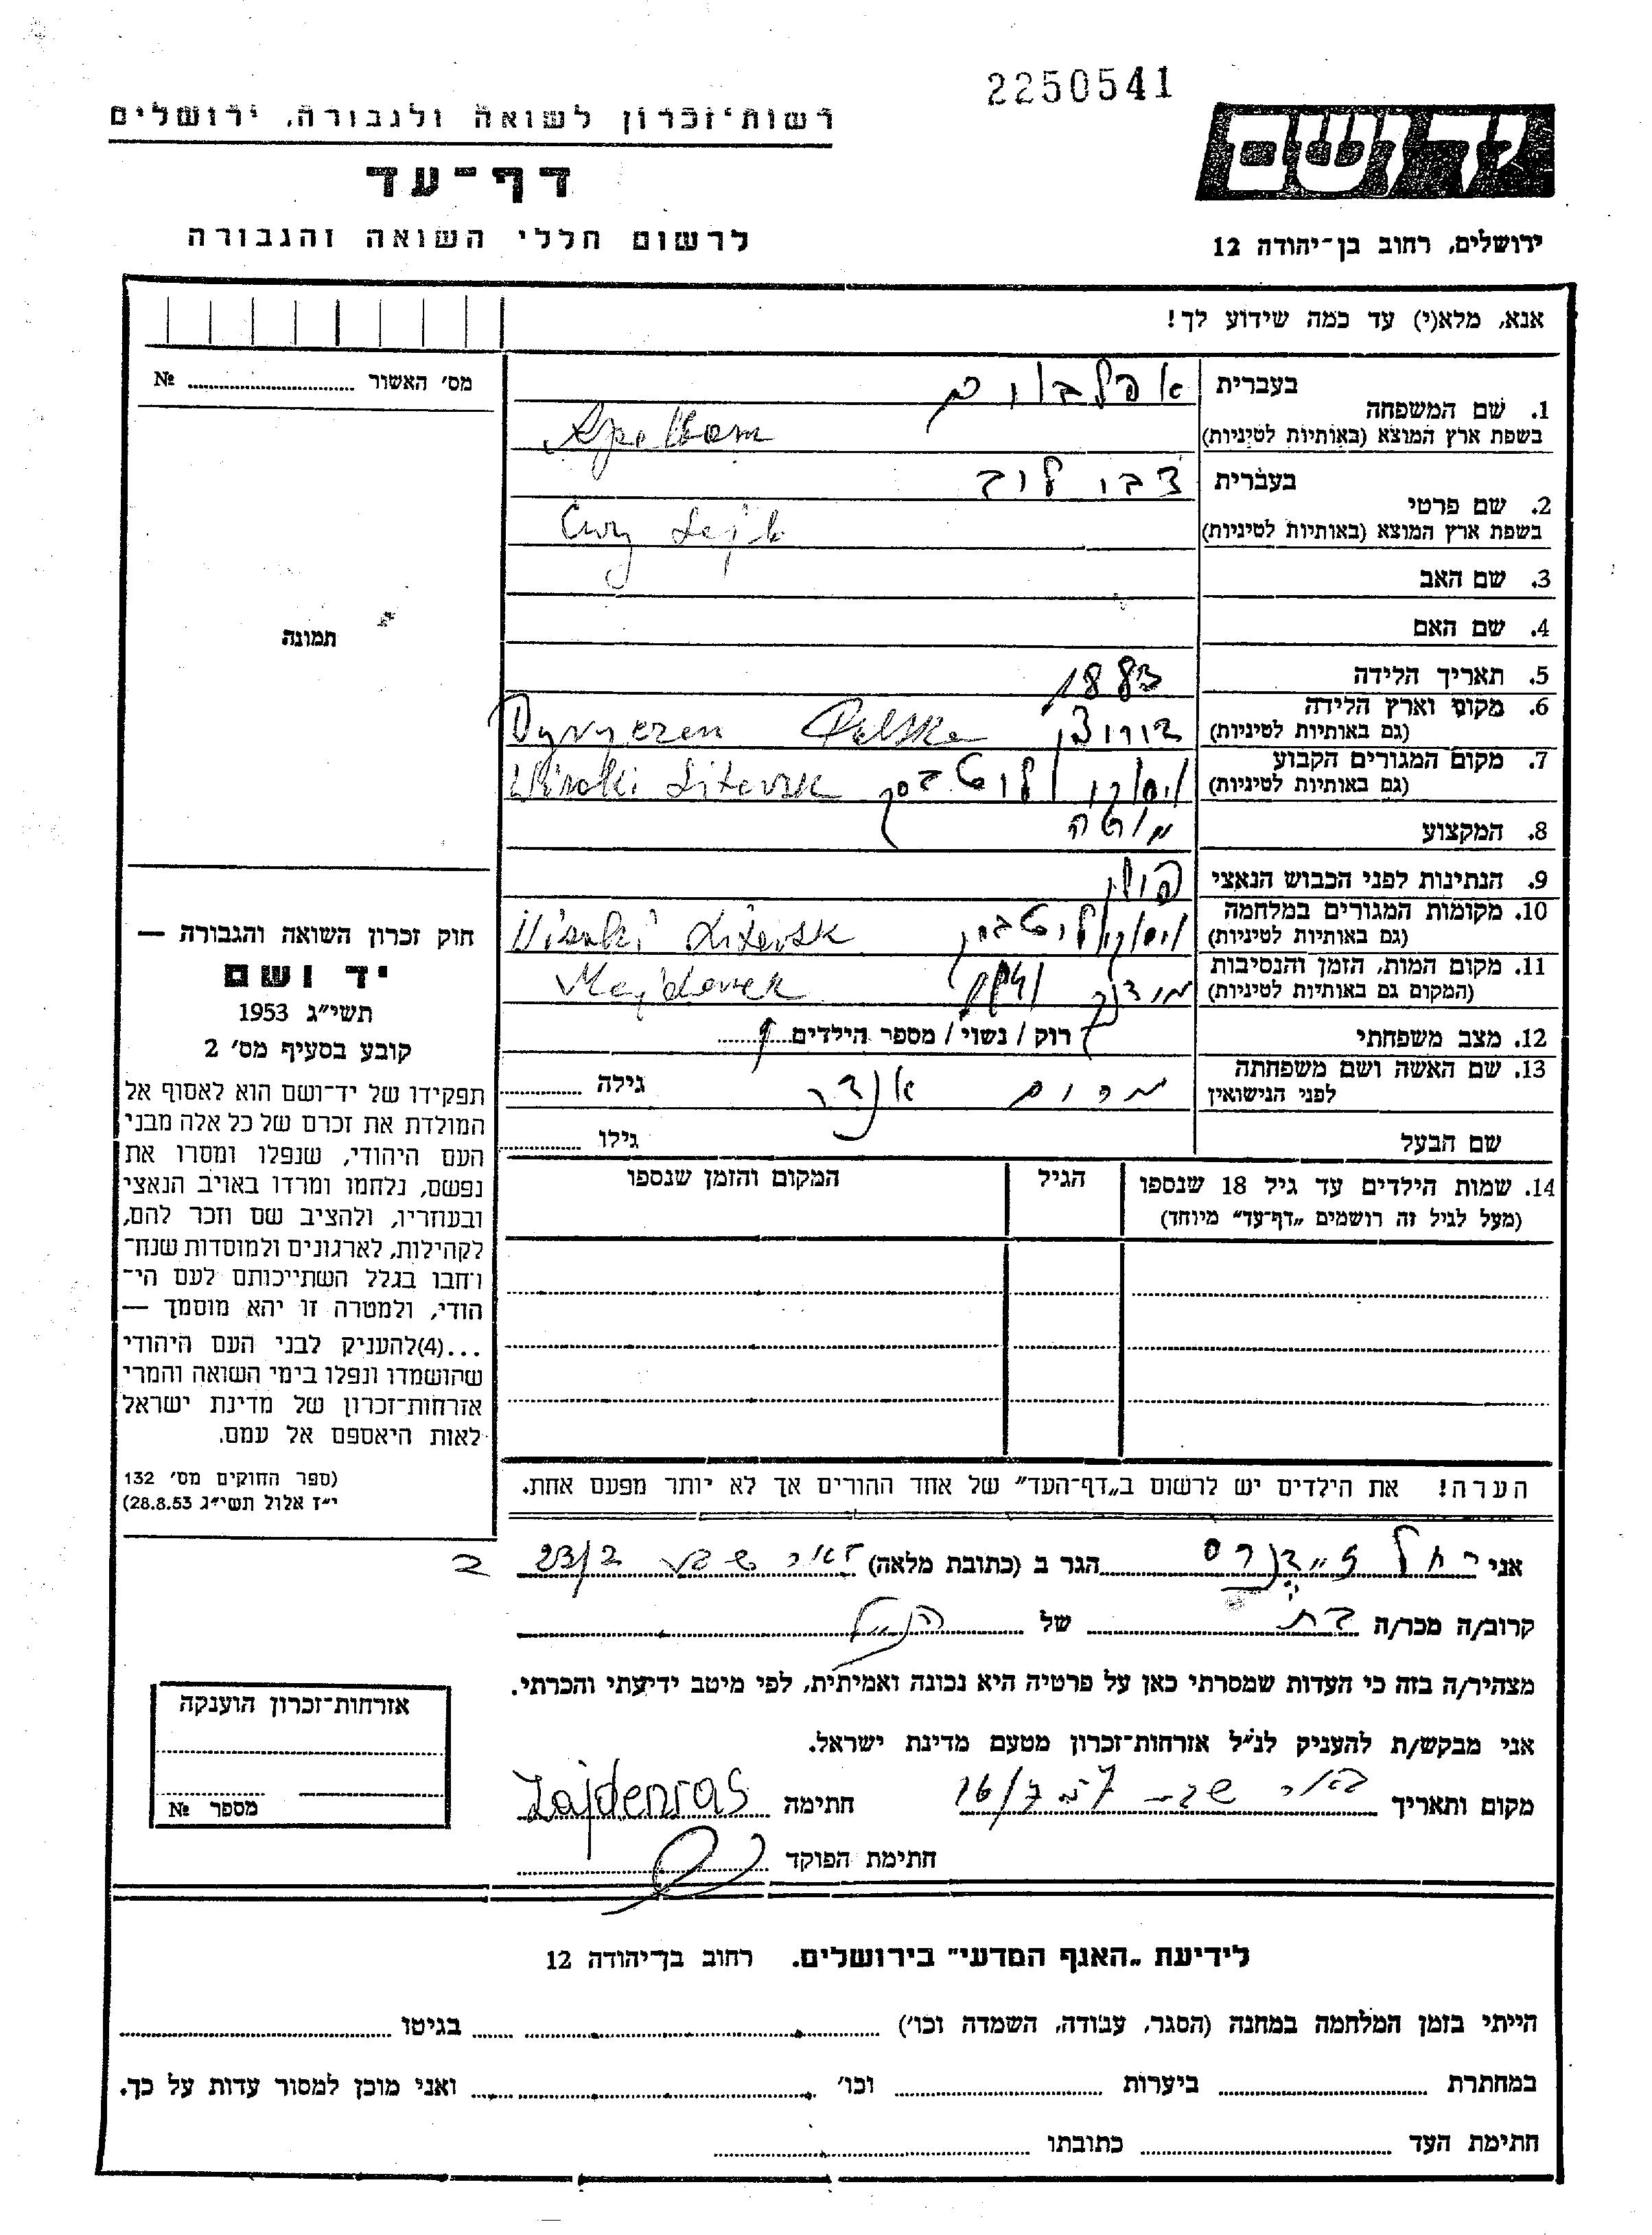 2250541
רשות־זכרון לשואה ולגבורה, ירושלים
יד ושם
דף־עד
לרשום חללי השואה והגבורה
ירושלים, רחוב בן־יהודה 12
אנא, מלא(י) עד כמה שידוע לך!
מס׳ האשור № ........
1. שם המשפחה
בעברית אפלבוים
בשפת ארץ המוצא (באותיות לטיניות) Apelbom
2. שם פרטי
בעברית צבי ליב
בשפת ארץ המוצא (באותיות לטיניות) Cwy Lejb
3. שם האב
4. שם האם
תמונה
5. תאריך הלידה 1883
6. מקום וארץ הלידה
(גם באותיות לטיניות) Polska
7. מקום המגורים הקבוע
(גם באותיות לטיניות) Wisoki Litevsk
8. המקצוע מורה
9. הנתינות לפני הכבוש הנאצי פולין
10. מקומות המגורים במלחמה
(גם באותיות לטיניות) Wisoki Litevsk
11. מקום המות, הזמן והנסיבות
(המקום גם באותיות לטיניות) Majdanek
12. מצב משפחתי רוק / נשוי / מספר הילדים
13. שם האשה ושם משפחתה
לפני הנישואין מרים גילה ........
שם הבעל גילו ........
14. שמות הילדים עד גיל 18 שנספו הגיל המקום והזמן שנספו
(מעל לגיל זה רושמים „דף־עד” מיוחד)
חוק זכרון השואה והגבורה —
יד ושם
תשי״ג 1953
קובע בסעיף מס׳ 2
תפקידו של יד־ושם הוא לאסוף אל
המולדת את זכרם של כל אלה מבני
העם היהודי, שנפלו ומסרו את
נפשם, נלחמו ומרדו באויב הנאצי
ובעוזריו, ולהציב שם וזכר להם,
לקהילות, לארגונים ולמוסדות שנח־
רחבו בגלל השתייכותם לעם הי־
הודי, ולמטרה זו יהא מוסמך —
...(4)להעניק לבני העם היהודי
שהושמדו ונפלו בימי השואה והמרי
אזרחות־זכרון של מדינת ישראל
לאות היאספם אל עמם.
(ספר החוקים מס׳ 132
י״ז אלול תשי״ג 28.8.53)
הערה! את הילדים יש לרשום ב„דף־העד” של אחד ההורים אך לא יותר מפעם אחת.
אני רחל הגר ב (כתובת מלאה) באר שבע 23/2 ב
קרוב/ה מכר/ה בת של הנ״ל
מצהיר/ה בזה כי העדות שמסרתי כאן על פרטיה היא נכונה ואמיתית, לפי מיטב ידיעתי והכרתי.
אני מבקש/ת להעניק לנ״ל אזרחות־זכרון מטעם מדינת ישראל.
מקום ותאריך באר שבע 16/7 חתימה Zajdenras
חתימת הפוקד
אזרחות־זכרון הוענקה
מספר №
לידיעת „האגף המדעי” בירושלים. רחוב בן־יהודה 12
הייתי בזמן המלחמה במחנה (הסגר, עבודה, השמדה וכו׳) ........ בגיטו ........
במחתרת ........ ביערות ........ וכו׳ ........ ואני מוכן למסור עדות על כך.
חתימת העד ........ כתובתו ........